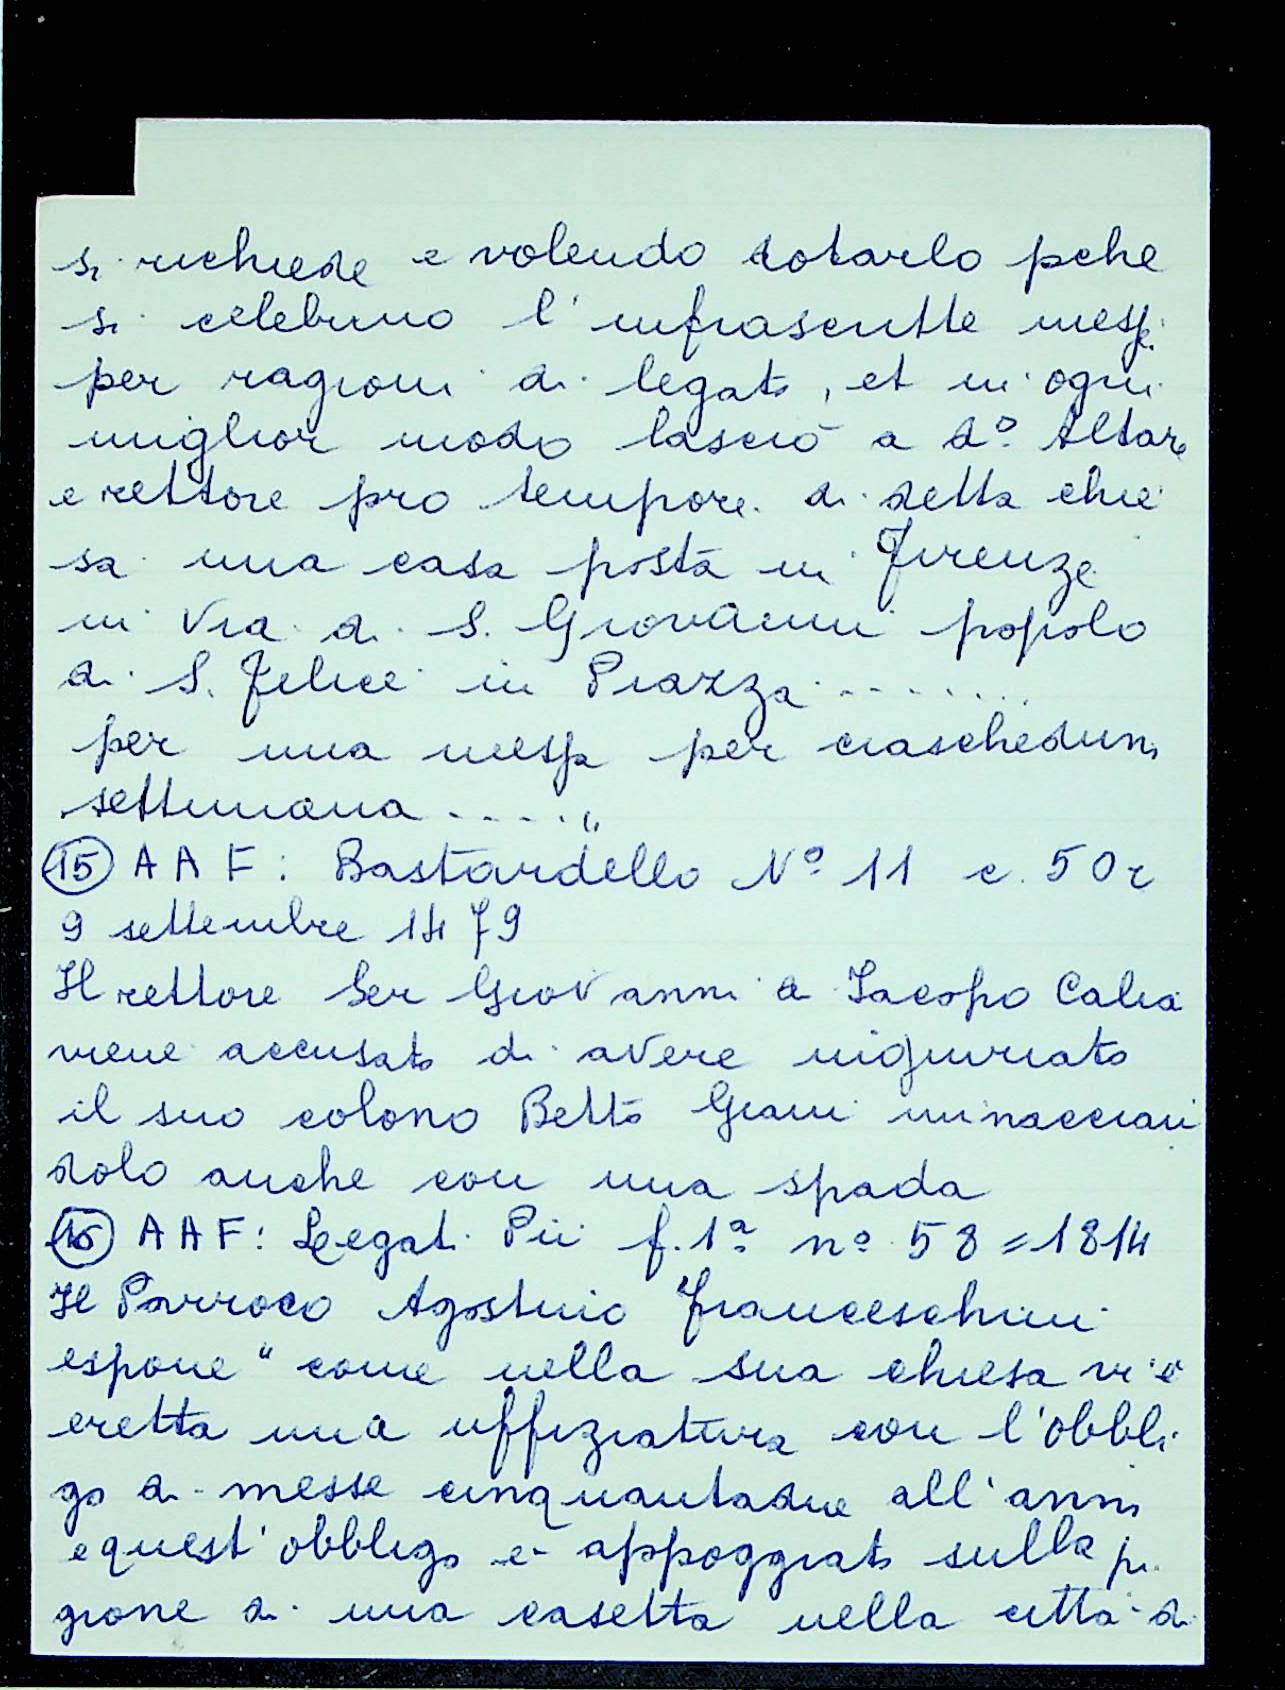 si richiede e volendo dotarlo pche
si celebrino l'infrascritte messe
per ragioni di legato, et in ogni
miglior modo lasciò a do. Altare
e rettore pro tempore di detta chie
sa una casa posta in Firenze
in Via di S. Giovanni popolo
di S. Felice in Piazza ........
per una messa per ciascheduna
settimana ....."
(15) A A F: Bastardello No 11 c. 50r
9 settembre 1479
Il rettore Ser Giovanni di Jacopo
viene accusato di avere ingiuriato
il suo colono Betto Giani minaccian
dolo anche con una spada
(16) A A F: Legati Pii f. 1a no 58 = 1814
Il Parroco Agostino Franceschini
espone "come nella sua chiesa vi è
eretta una uffiziatura con l'obbli
go di messe cinquantadue all'anno
e quest'obbligo è appoggiato sulla pi
gione di una casetta nella città di